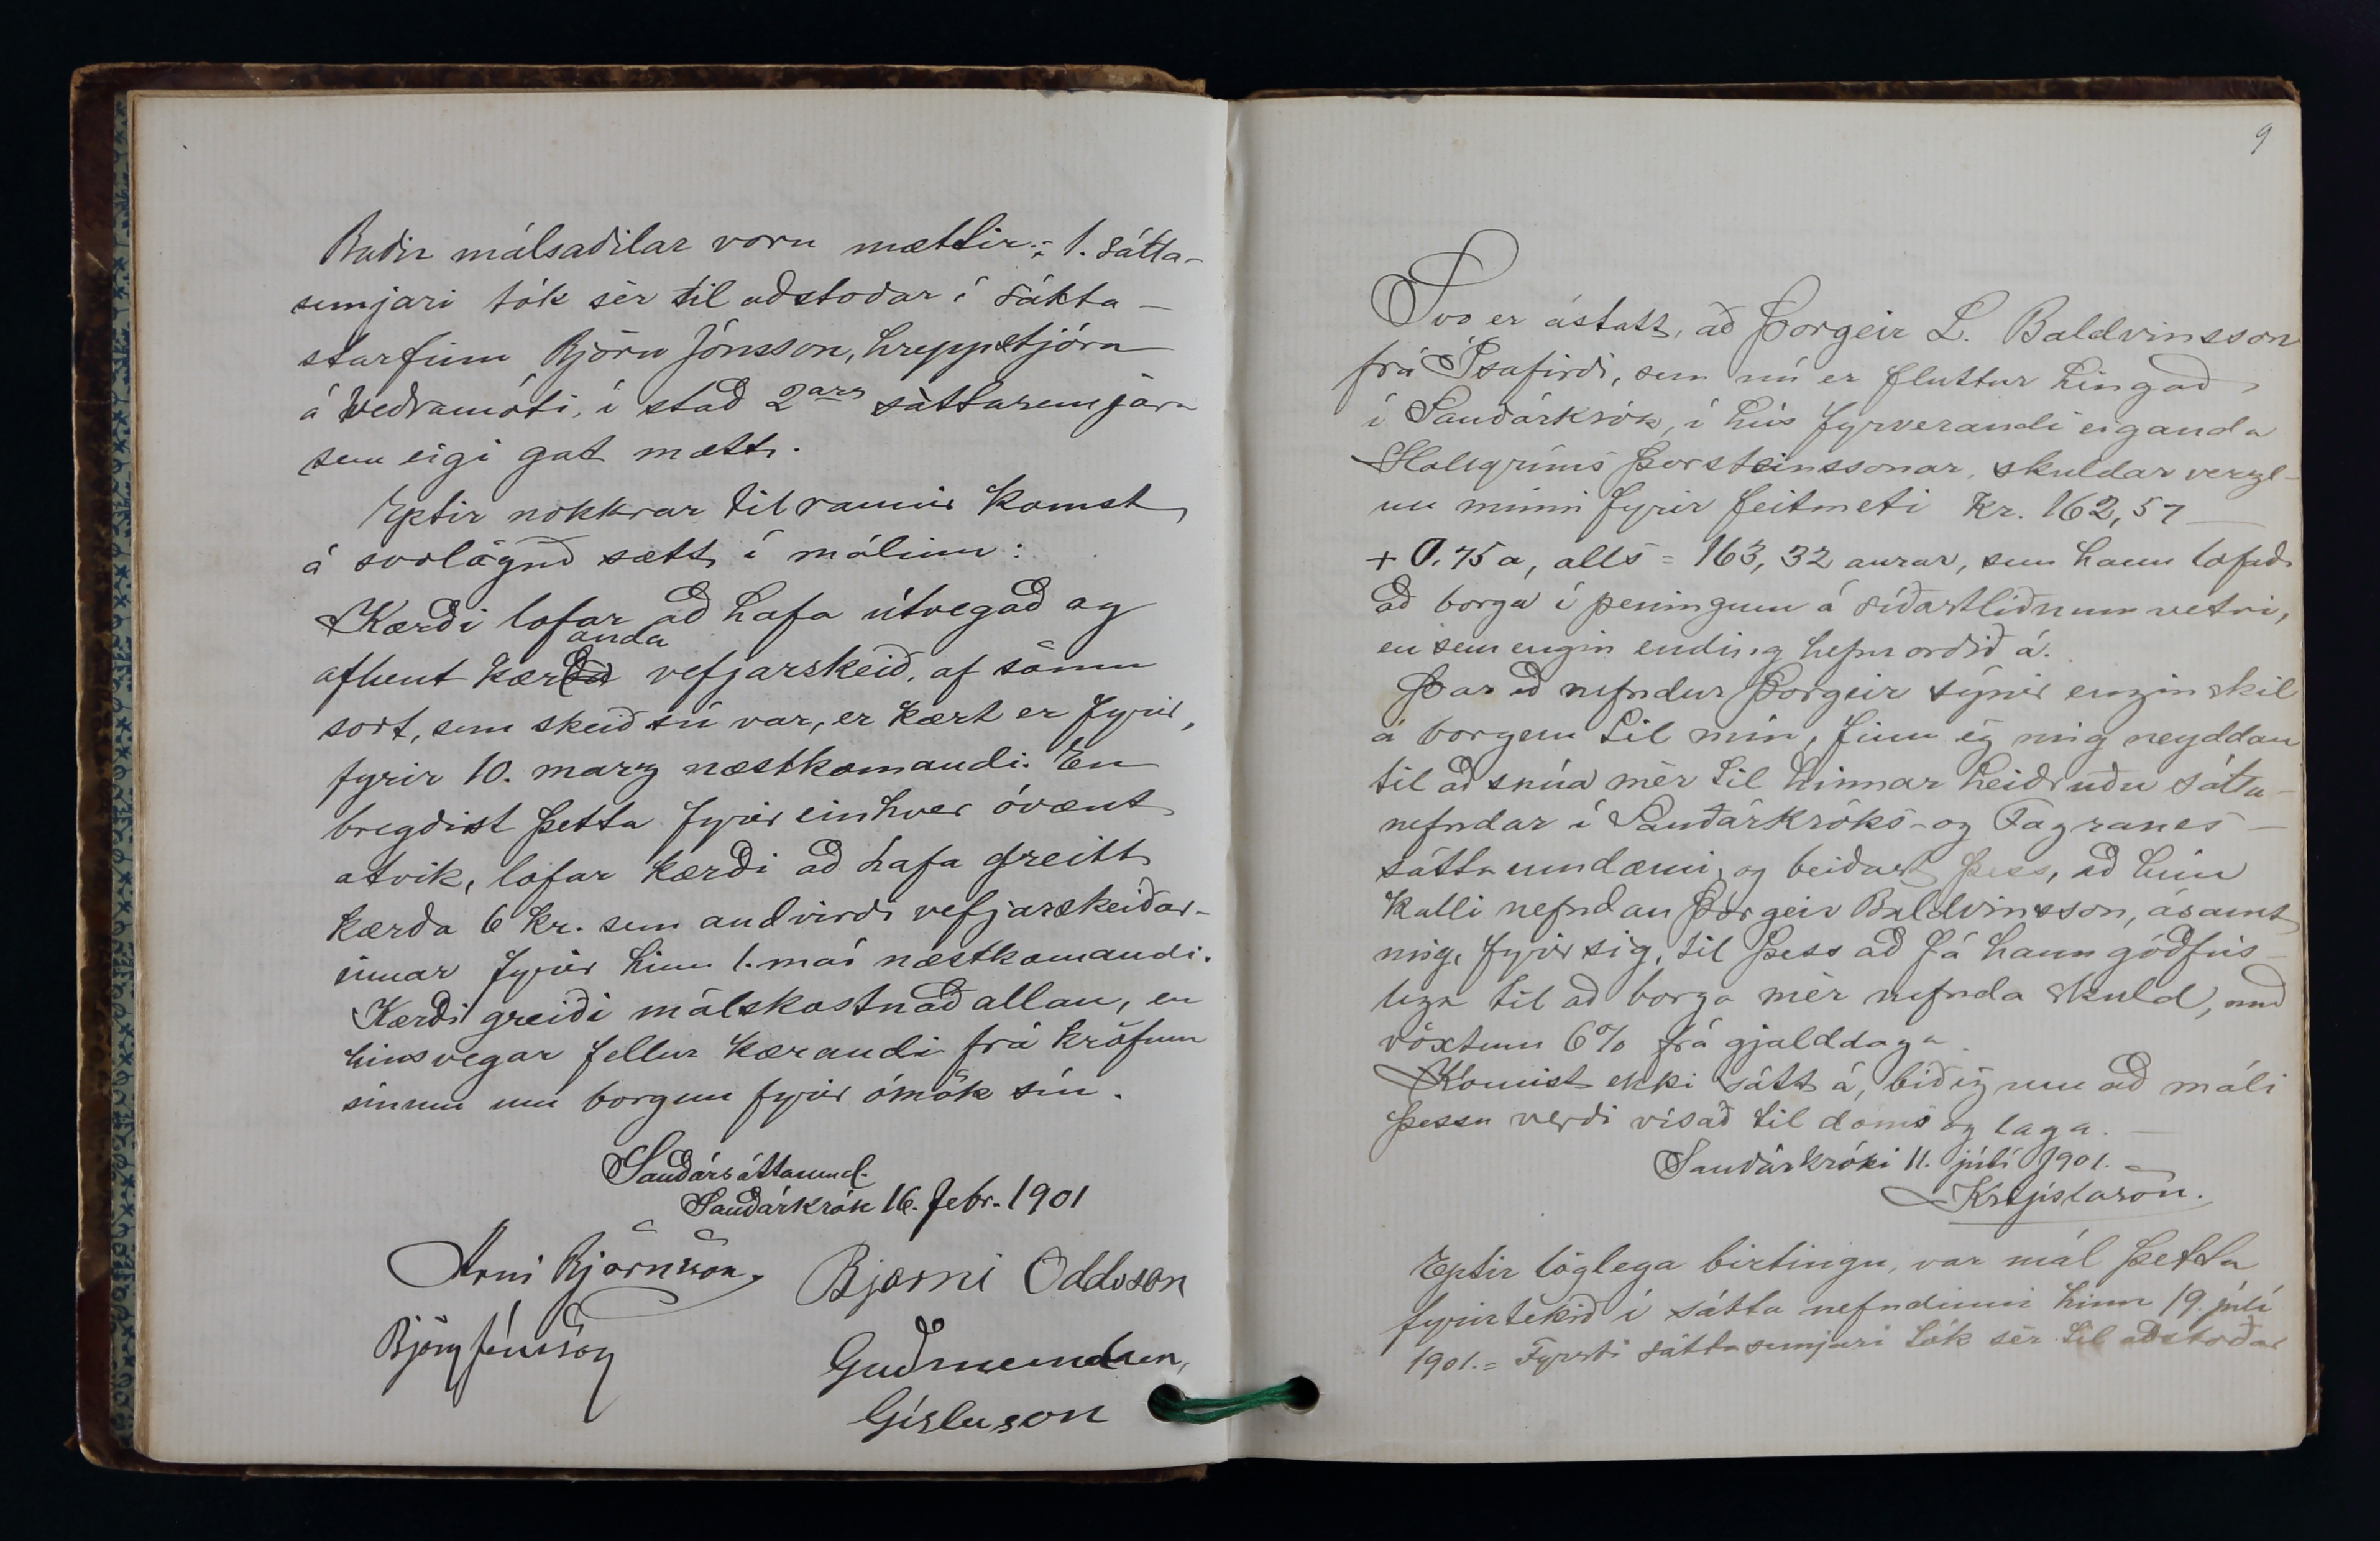 Báðir málsaðilar voru mættir.; 1. sátta-
semjari tók sér til aðstoðar í sátta-
starfinu Björn Jónsson, hreppstjóra
á Veðramóti, í stað 2ars sáttasemjara
sem eigi gat mætt.
Eptir nokkrar tilraunir komst
á svolöguð sætt í málinu:
Kærði lofar að hafa útvegað og
afhent kæranda vefjarskeið, af sömu
sort, sem skeið sú var, er kært er fyrir,
fyrir 10. marz næstkomandi. En
bregðist þetta fyrir einhver óvænt
atvik, lofar kærði að hafa greitt
kærða 6 kr. sem andvirði vefjarskeiðar-
innar fyrir hinn 1. maí næstkomandi.
Kærði greiði málskostnað allan, en
hinsvegar fellur kærandi frá kröfum
sínum um borgun fyrir ómök sín.
Sauðársáttaumd.
Sauðárkrók 16. febr. 1901
Árni Björnsson, Bjarni Oddsson
Björn Jónsson Guðmundur,
Gísluson
9
Svo er ástatt, að Þorgeir L. Baldvinsson
frá Ísafirði, sem nú er fluttur hingað
í Sauðárkrók, í hús fyrverandi eiganda
Hallgríms Þorsteinssonar, skuldar verzl-
un minni fyrir feitmeti kr. 162,57
+ 0.75 a, alls = 163,32 aurar, sem hann lofaði
að borga í peningum á síðastliðnum vetri,
en sem engin ending hefur orðið á.
Þar eð nefndur Þorgeir sýnir engin skil
á borgun til mín, finn ég mig neyddan
til að snúa mér til hinnar heiðruðu sátta-
nefndar í Sauðárkróks- og Fagranes-
sáttaumdæmi, og beiðast þess, að hún
kalli nefndan Þorgeir Baldvinsson, ásamt
mig, fyrir sig, til þess að fá hann góðfús-
lega til að borga mér nefnda skuld, með
vöxtum 6% frá gjalddaga
Komist ekki sátt á, bið ég um að máli
þessu verði vísað til doms og laga.
Sauðárkróki 11. júlí 1901.
Kr Gíslason.
Eptir löglega birtingu, var mál þetta
fyrirtekið í sátta nefndinni hinn 19. júlí
1901.= Fyrsti sáttasemjari tók sér til aðstoðar